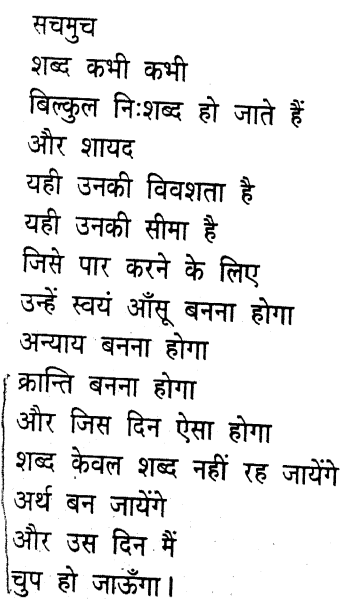 सचमुच
शब्द कभी कभी
बिल्कुल निःशब्द हो जाते हैं
और शायद
यही उनकी विवशता है
यही उनकी सीमा है
जिसे पार करने के लिए
उन्हें स्वयं आँसू बनना होगा
अन्याय बनना होगा
क्रान्ति बनना होगा
और जिस दिन ऐसा होगा
शब्द केवल शब्द नहीं रह जायेंगे
अर्थ बन जायेंगे
और उस दिन मैं
चुप हो जाऊँगा।